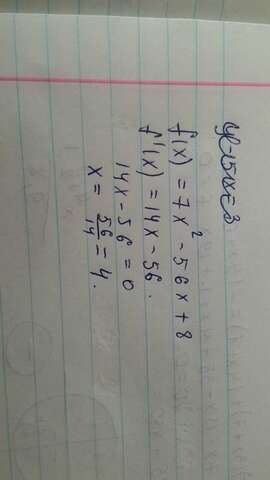 f(x) = 7x² - 56x + 8
f'(x) = 14x - 56.
14x - 56 = 0
x = 56/14 = 4.